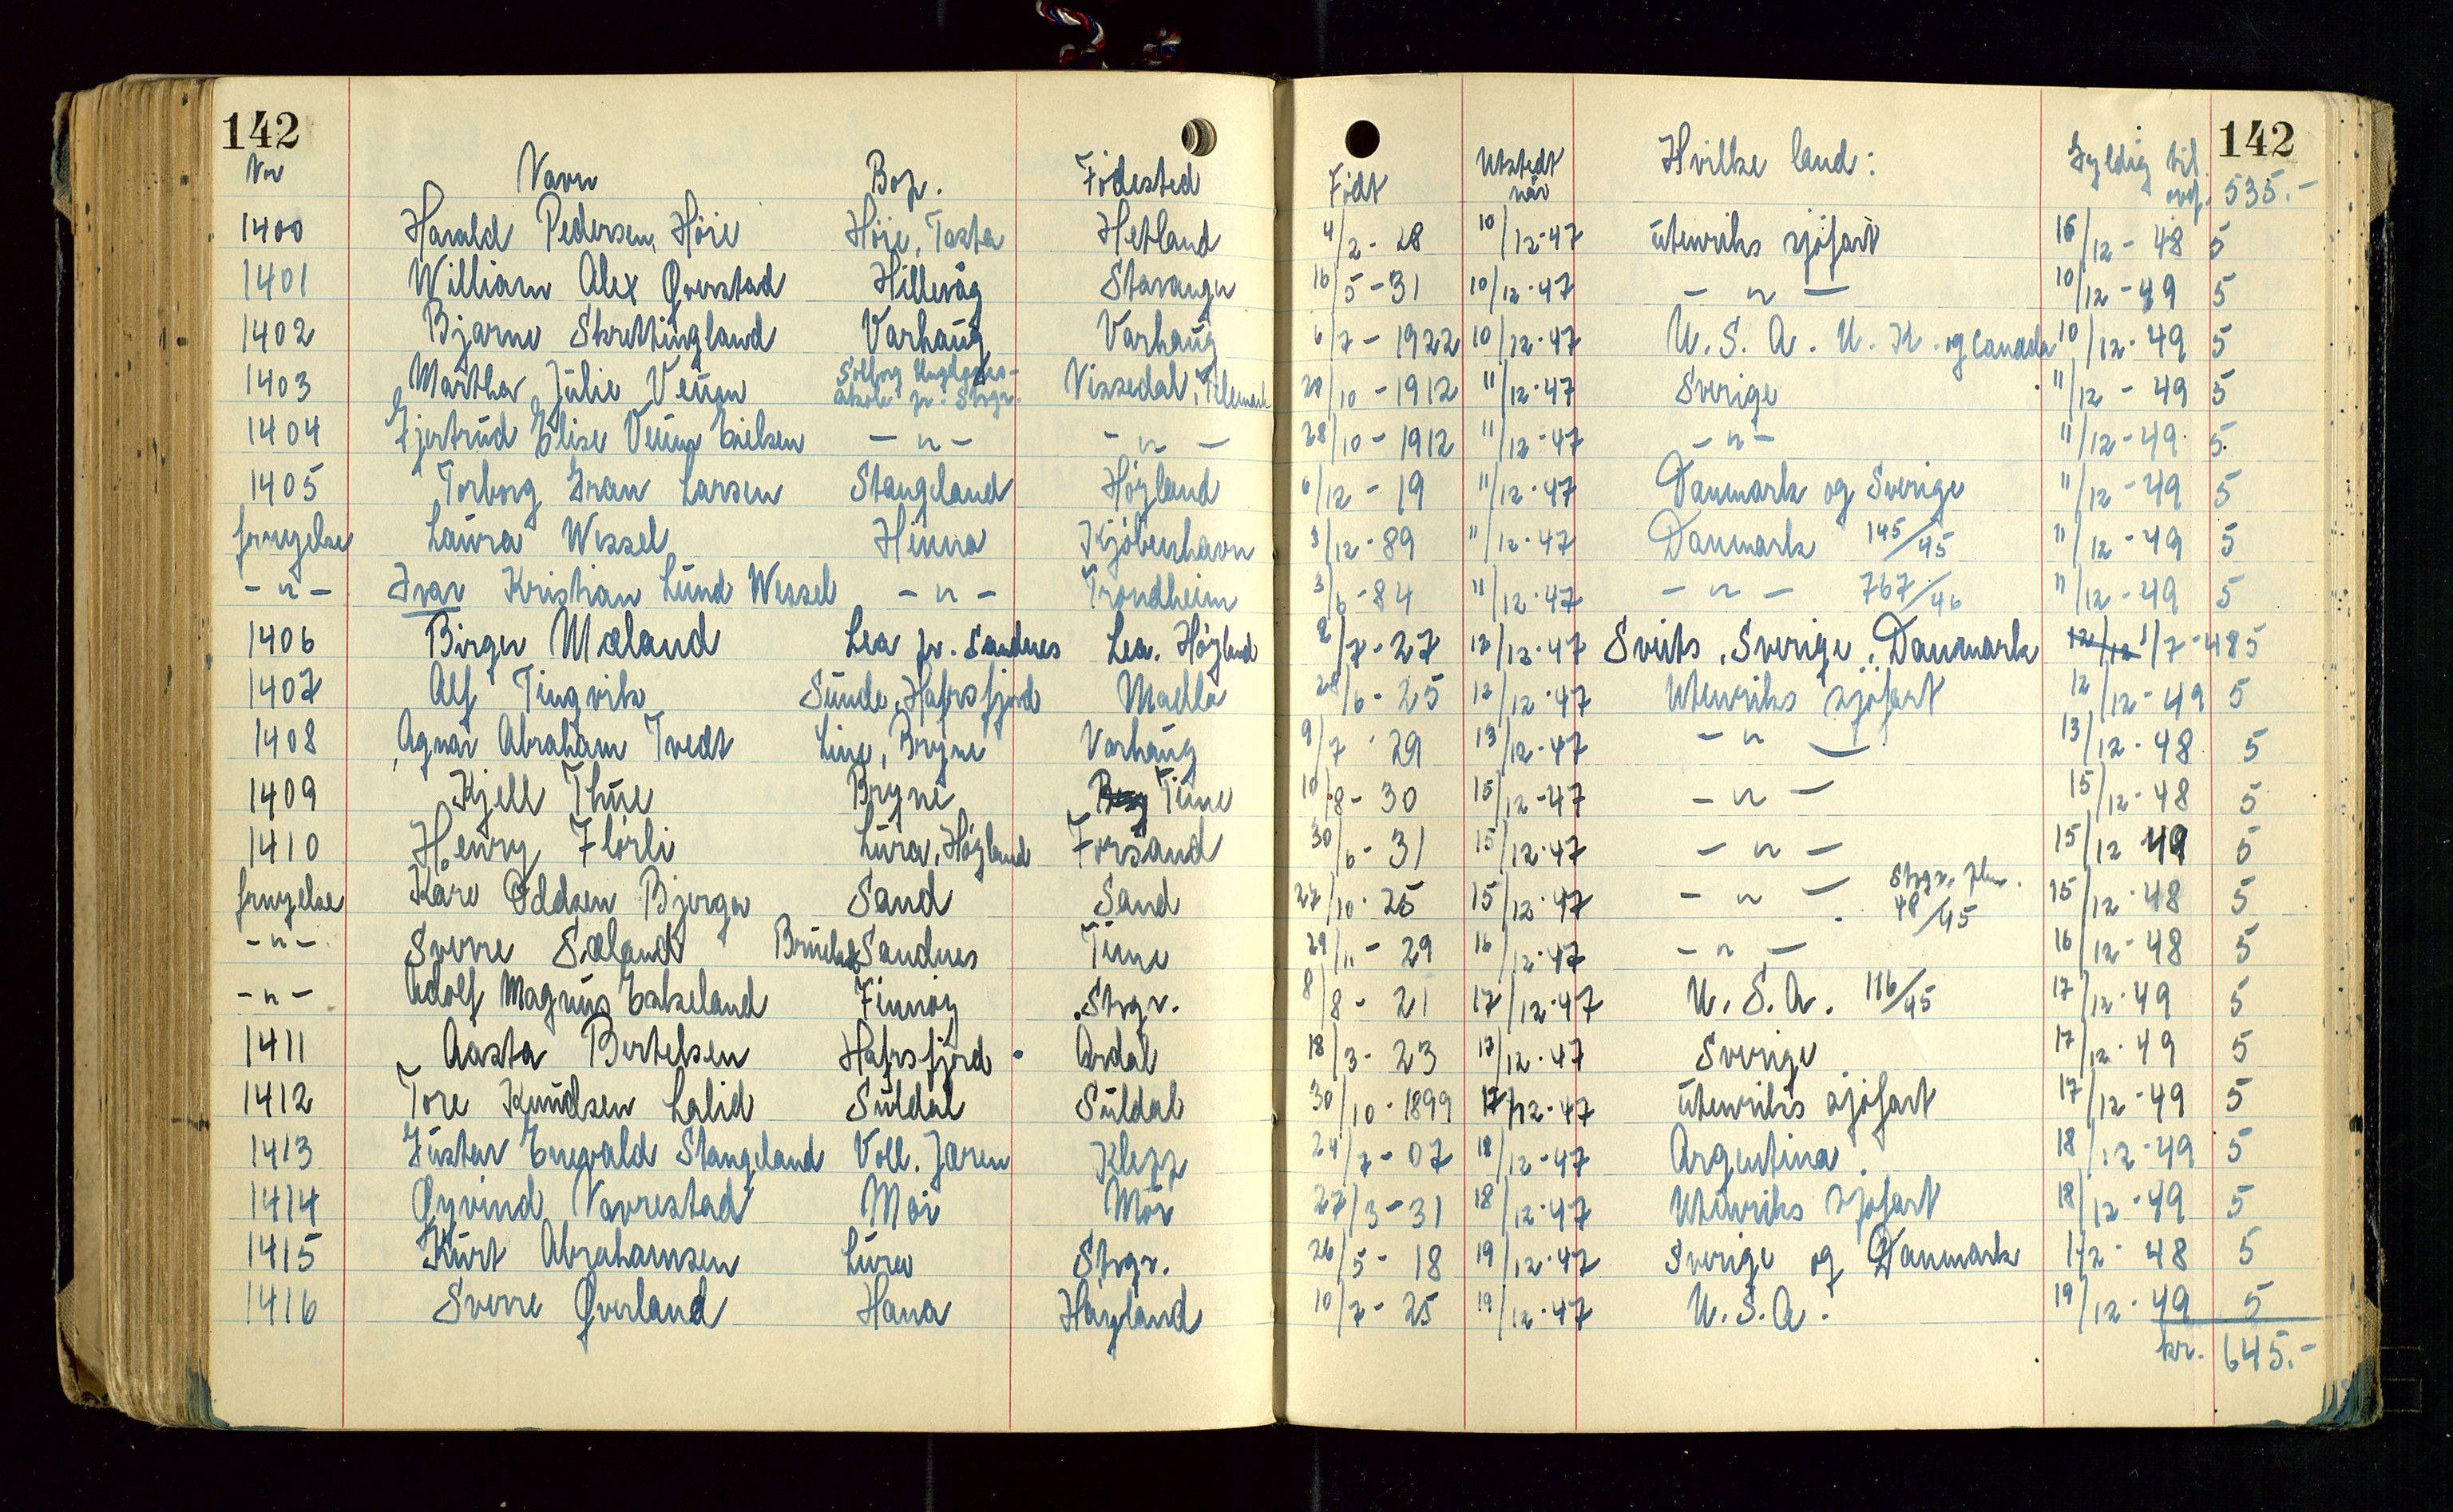 142 142
Nr Navn Bop. Födested Födt Utstedt når Hvilke land: Gyldig til ovf. 535.-
1400 Harald Pedersen Höie Höie, Tasta Hetland 4/2-28 10/12-47 utenriks sjöfart 16/12-48 5
1401 William Alex Qverstad Hillevåg Stavanger 16/5-31 10/12-47 -"- 10/12-49 5
1402 Bjarne Skrettingland Varhaug Varhaug 6/7-1922 10/12-47 U.S.A. U.K. og Canada 10/12-49 5
1403 Martha Julie Veum Solborg Ungdomsskole pr. Stvgr. Vissedal, Telemark 28/10-1912 11/12-47 Sverige 11/12-49 5
1404 Gjertrud Elise Veum -"- -"- 28/10-1912 11/12-47 -"- 11/12-49 5.
1405 Torborg Gran Larsen Stangeland Höyland 6/12-19 11/12-47 Danmark og Sverige 11/12-49 5
fornyelse Laura Wessel Hinna Kjöbenhavn 3/12-89 11/12-47 Danmark 145/45 11/12-49 5
-"- Ivar Kristian Lund Wessel -"- Trondheim 3/6-84 11/12-47 -"- 767/46 11/12-49 5
1406 Birger Mæland Lea pr. Sandnes Lea. Höyland 2/7-27 12/12-47 Sveits, Sverige, Danmark 12/12 1/7-48 5
1407 Alf Tingvik Sunde, Hafrsfjord Madla 28/6-25 12/12-47 Utenriks sjöfart 12/12-49 5
1408 Agnar Abraham Tvedt Line, Bryne Varhaug 9/7-29 13/12-47 -"- 13/12-48 5
1409 Kjell Thue Bryne Bry Time 10/8-30 15/12-47 -"- 15/12-48 5
1410 Henry Flörli Lura, Höyland Forsand 30/6-31 15/12-47 -"- 15/12 49 5
fornyelse Kåre Oddsen Bjerga Sand Sand 27/10-25 15/12-47 -"- Stvgr. 48/45 15/12-48 5
-"- Sverre Sæland Sandnes Time 29/11-29 16/12-47 -"- 16/12-48 5
-"- Adolf Magnus Eskeland Finnöy Stvgr. 8/8-21 17/12-47 U.S.A. 116/45 17/12-49 5
1411 Aasta Bertelsen Hafrsfjord Årdal 18/3-23 17/12-47 Sverige 17/12-49 5
1412 Tore Knudsen Lalid Suldal Suldal 30/10-1899 17/12-47 utenriks sjöfart 17/12-49 5
1413 Gustav Enevald Stangeland Voll. Jæren Klepp 24/7-07 18/12-47 Argentina. 18/12-49 5
1414 Øyvind Vavrestad Moi Moi 27/3-31 18/12-47 Utenriks sjöfart 18/12-49 5
1415 Kurt Abrahamsen Lura Stvgr. 26/5-18 19/12-47 Sverige og Danmark 1/2-48 5
1416 Sverre Qverland Hana Höyland 10/7-25 19/12-47 U.S.A. 19/12-49 5
kr. 645.-